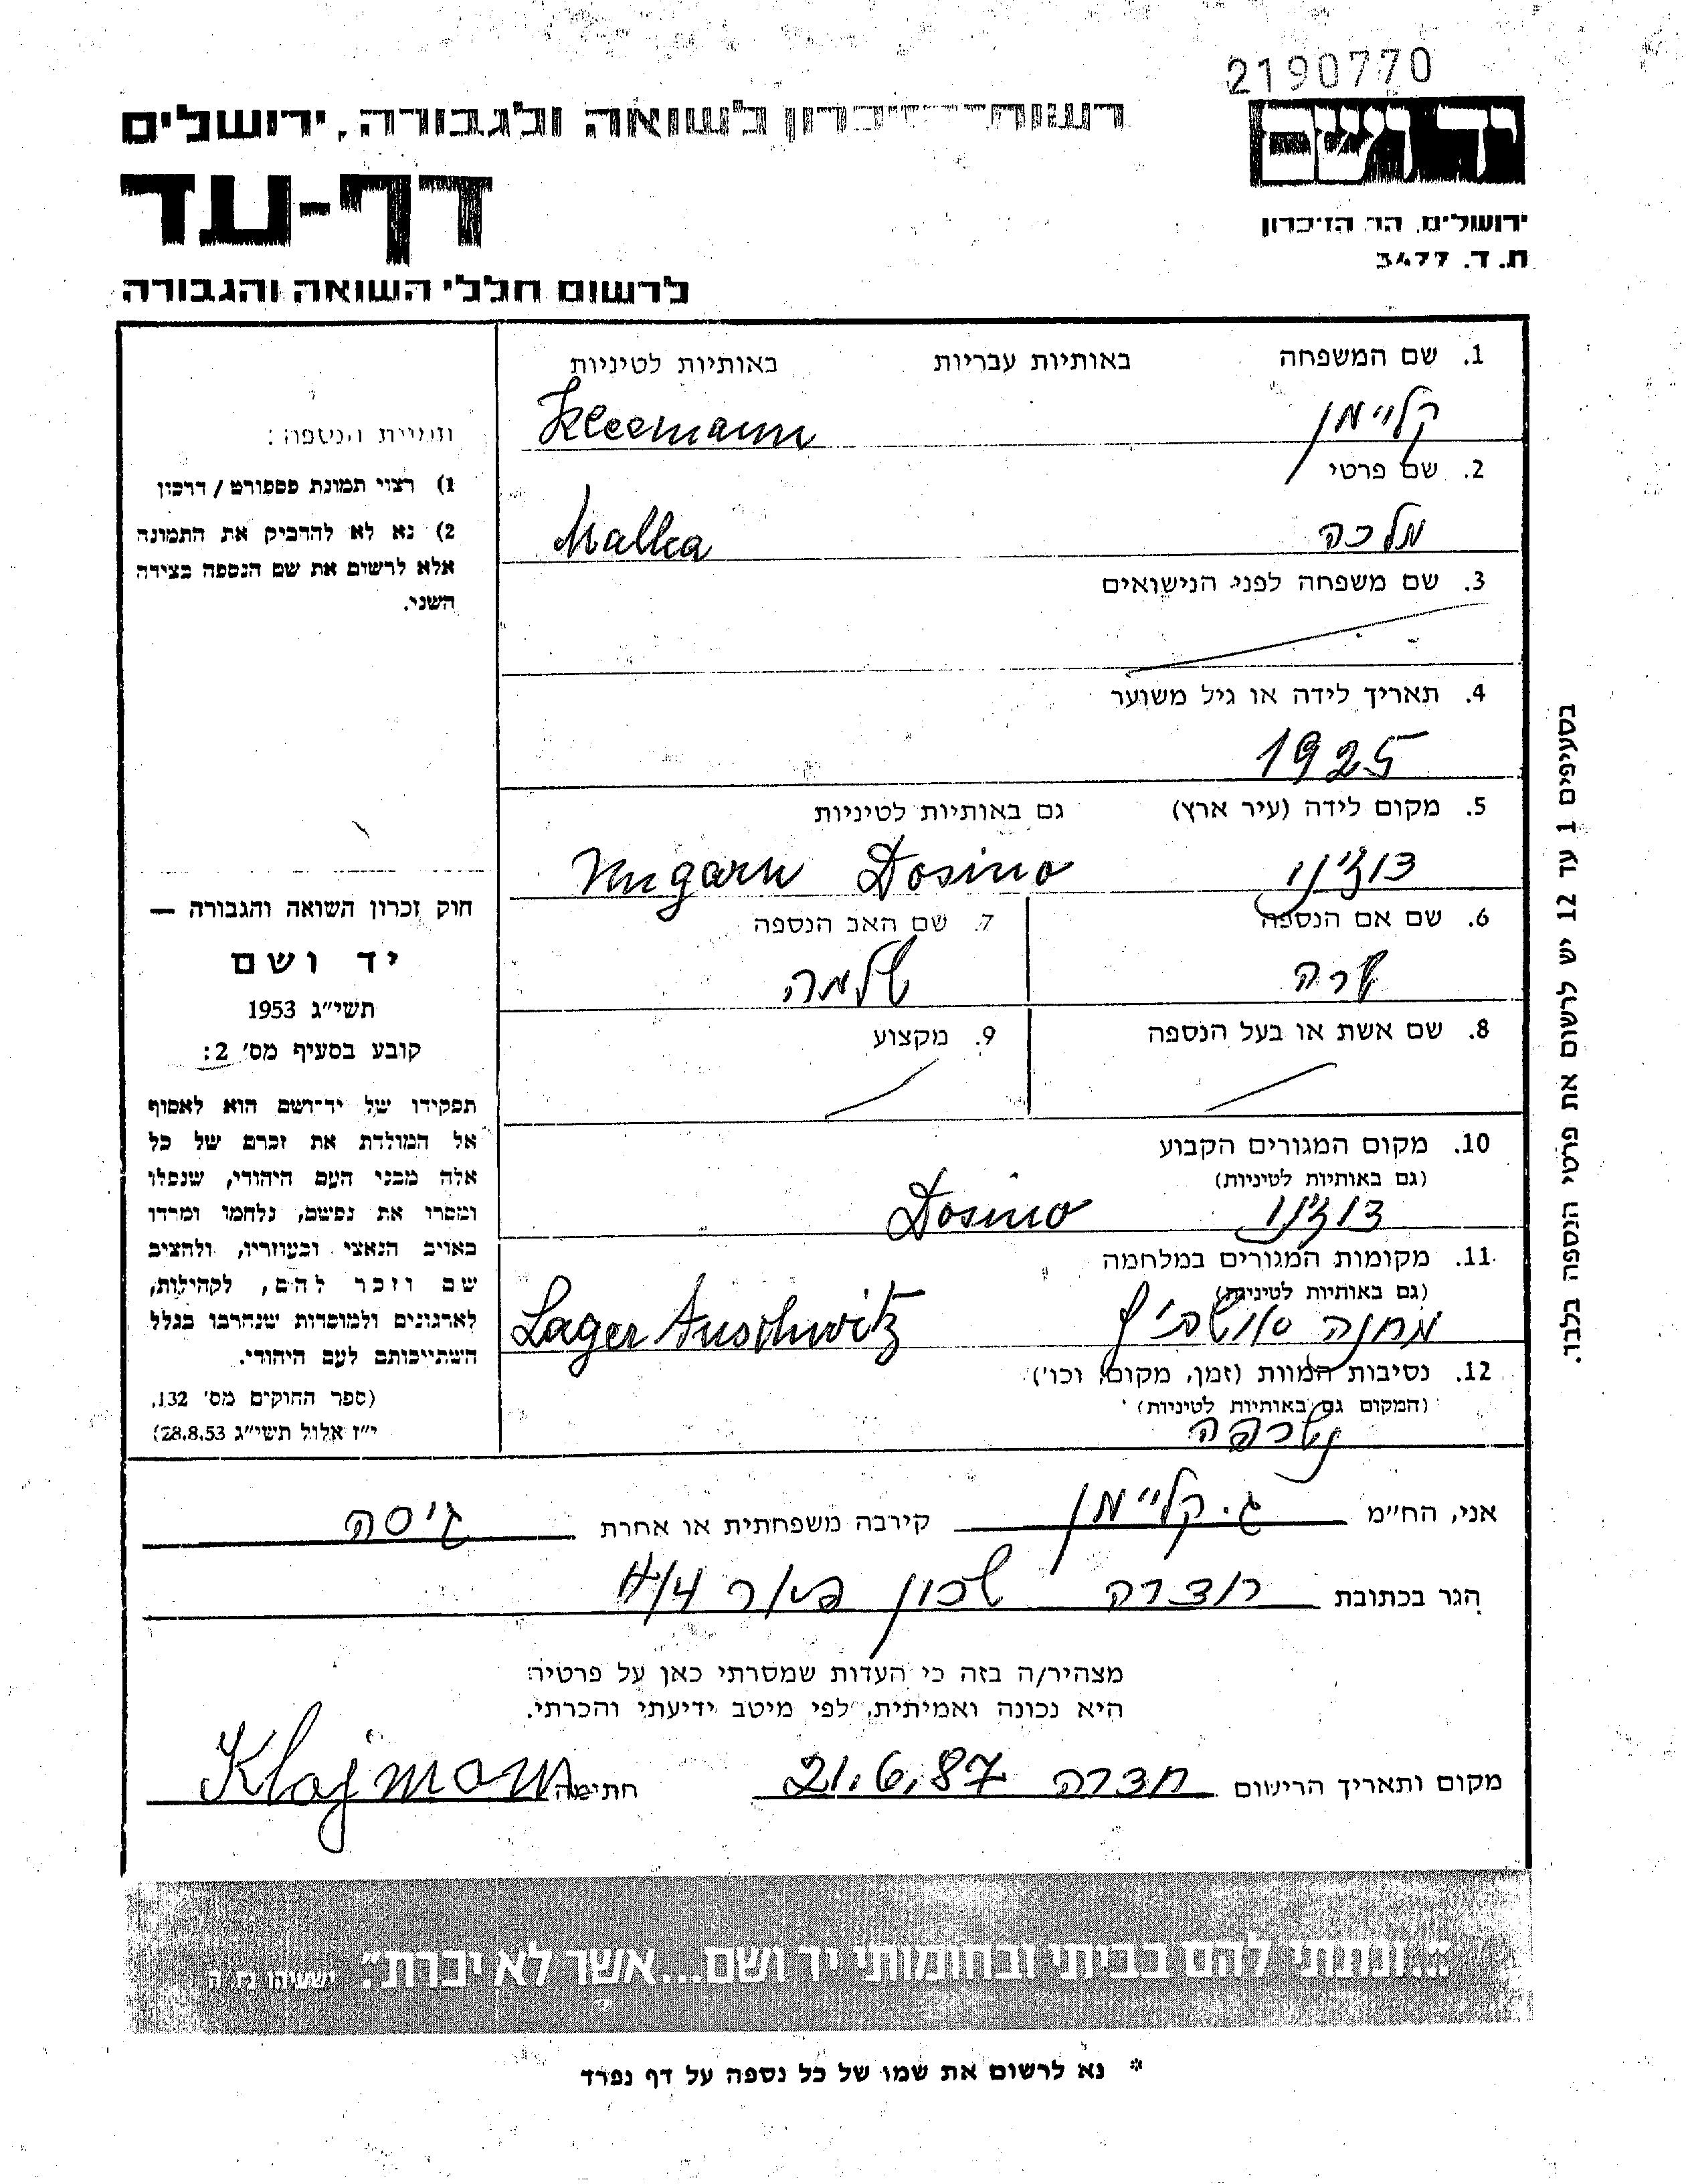 2190770
רשות הזיכרון לשואה ולגבורה, ירושלים
יד ושם
דף-עד
ירושלים, הר הזיכרון
ת. ד. 3477
לרשום חללי השואה והגבורה
1. שם המשפחה באותיות עבריות באותיות לטיניות
קליימן Kleemann
2. שם פרטי
מלכה Malka
3. שם משפחה לפני הנישואים
4. תאריך לידה או גיל משוער
1925
5. מקום לידה (עיר ארץ) גם באותיות לטיניות
דוזינו Dosino Ungarn
6. שם אם הנספה 7. שם האב הנספה
שרה שלמה
8. שם אשת או בעל הנספה 9. מקצוע
10. מקום המגורים הקבוע
(גם באותיות לטיניות)
דוזינו Dosino
11. מקומות המגורים במלחמה
(גם באותיות לטיניות)
מחנה אושביץ Lager Auschwitz
12. נסיבות המוות (זמן, מקום, וכו')
(המקום גם באותיות לטיניות)
נשרפה
תמונת הנספה:
1) רצוי תמונת פספורט / דרכון
2) נא לא להדביק את התמונה
אלא לרשום את שם הנספה בצידה
השני.
חוק זכרון השואה והגבורה —
יד ושם
תשי"ג 1953
קובע בסעיף מס' 2:
תפקידו של יד-ושם הוא לאסוף
אל המולדת את זכרם של כל
אלה מבני העם היהודי, שנפלו
ומסרו את נפשם, נלחמו ומרדו
באויב הנאצי ובעוזריו, ולהציב
שם וזכר להם, לקהילות,
לארגונים ולמוסדות שנחרבו בגלל
השתייכותם לעם היהודי.
(ספר החוקים מס' 132,
י"ז אלול תשי"ג 28.8.53)
בסעיפים 1 עד 12 יש לרשום את פרטי הנספה בלבד.
אני, הח"מ ג. קליימן קירבה משפחתית או אחרת גיסה
הגר בכתובת חדרה שכון 4/4
מצהיר/ה בזה כי העדות שמסרתי כאן על פרטיה
היא נכונה ואמיתית, לפי מיטב ידיעתי והכרתי.
מקום ותאריך הרישום חדרה 21.6.87 חתימה Klajman
"...ונתתי להם בביתי ובחומותי יד ושם...אשר לא יכרת". ישעיהו נו, ה
* נא לרשום את שמו של כל נספה על דף נפרד